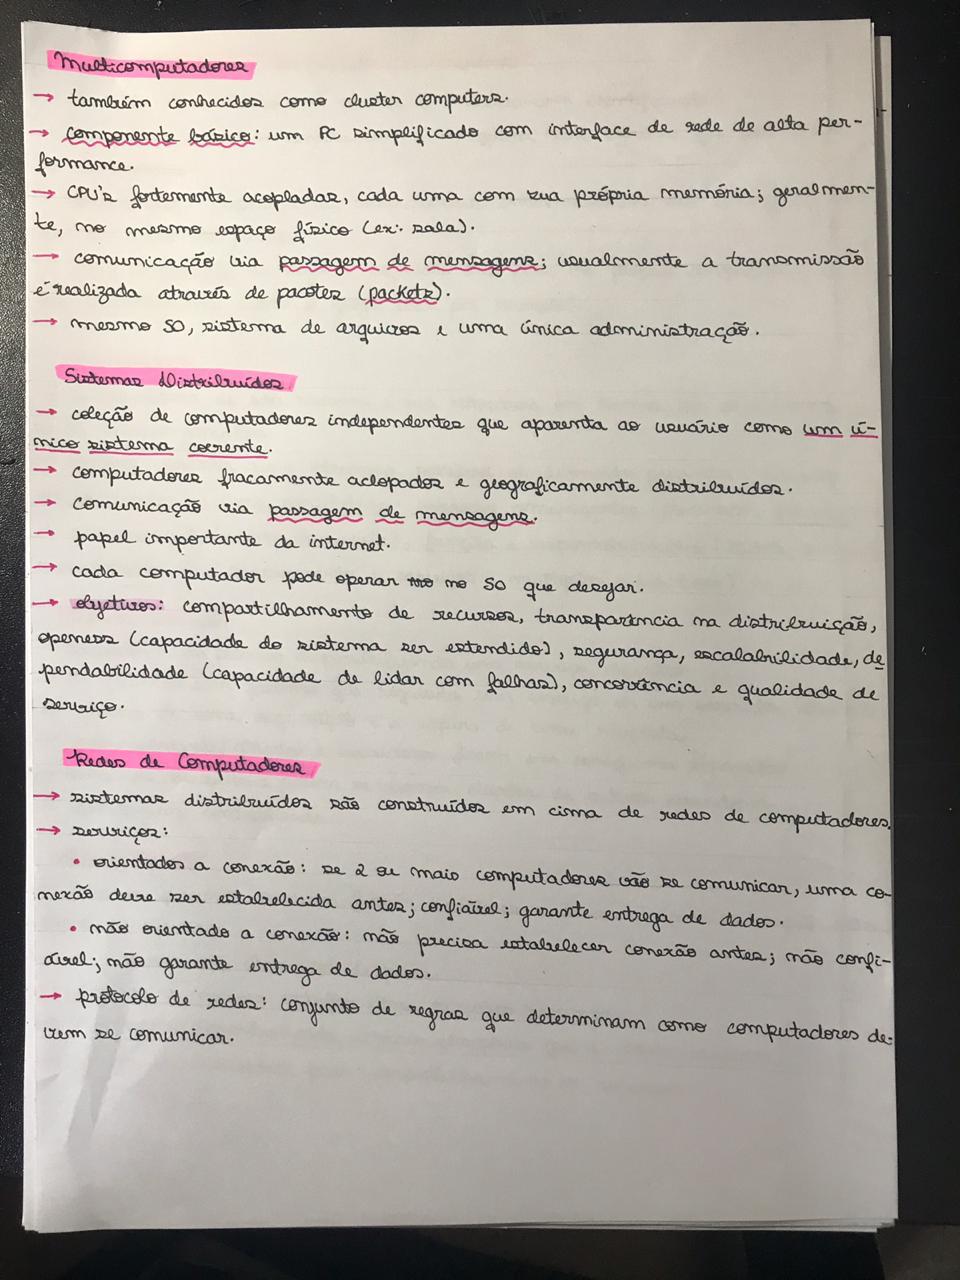 Multicomputadores
→ também conhecidos como cluster computers.
→ componente básico: um PC simplificado com interface de rede de alta per-
formance.
→ CPU's fortemente acopladas, cada uma com sua própria memória; geralmen-
te, no mesmo espaço físico (ex: sala).
→ comunicação via passagem de mensagens; usualmente a transmissão
é realizada através de pacotes (packets).
→ mesmo SO, sistema de arquivos e uma única administração.
Sistemas Distribuídos
→ coleção de computadores independentes que aparenta ao usuário como um ú-
nico sistema coerente.
→ computadores fracamente aclopados e geograficamente distribuídos.
→ comunicação via passagem de mensagens.
→ papel importante da internet.
→ cada computador pode operar no no SO que desejar.
→ objetivos: compartilhamento de recursos, transparência na distribuição,
openess (capacidade do sistema ser estendido), segurança, escalabilidade, de
pendabilidade (capacidade de lidar com falhas), concorrência e qualidade de
serviço.
Redes de Computadores
→ sistemas distribuídos são construídos em cima de redes de computadores.
→ serviços:
• orientados a conexão: se 2 ou mais computadores vão se comunicar, uma co-
nexão deve ser estabelecida antes; confiável; garante entrega de dados.
• não orientado a conexão: não precisa estabelecer conexão antes; não confi-
ável; não garante entrega de dados.
→ protocolo de redes: conjunto de regras que determinam como computadores de-
vem se comunicar.